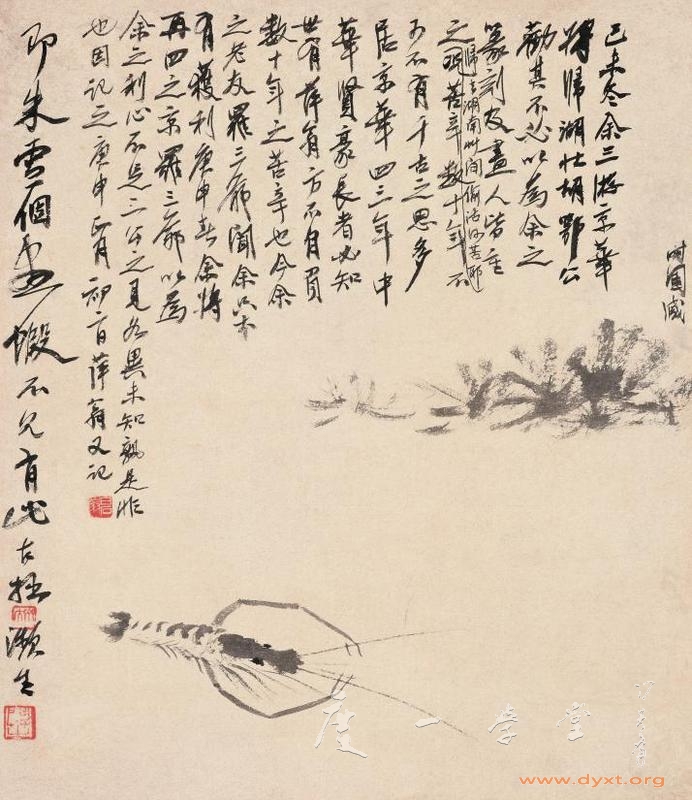 己未冬余三游京華
將歸湖北胡鄂公
勸其不必以為余之
篆刻及畫人皆重
之歸去湖南草間偷活何苦耶
況苦辛數十年不
可不有千古之思多
居京華四三年中
華賢豪長者必知
世有萍翁方不自負
數十年之苦辛也今余
之老友羅三爺聞余只
有獲利庚申春余將
再四之京羅三爺以為
余之利心不足二公之見各異未知孰是非
也因記之庚申正月初萍翁又記
即朱雪個畫蝦不見有此古拙瀕生
一學堂
www.dyxt.org